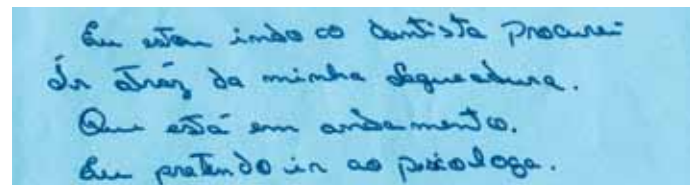 Eu estou indo ao dentista procurei
Ir atráz da minha laqueadura.
Que está em andamento.
Eu pretendo ir ao psicologa.